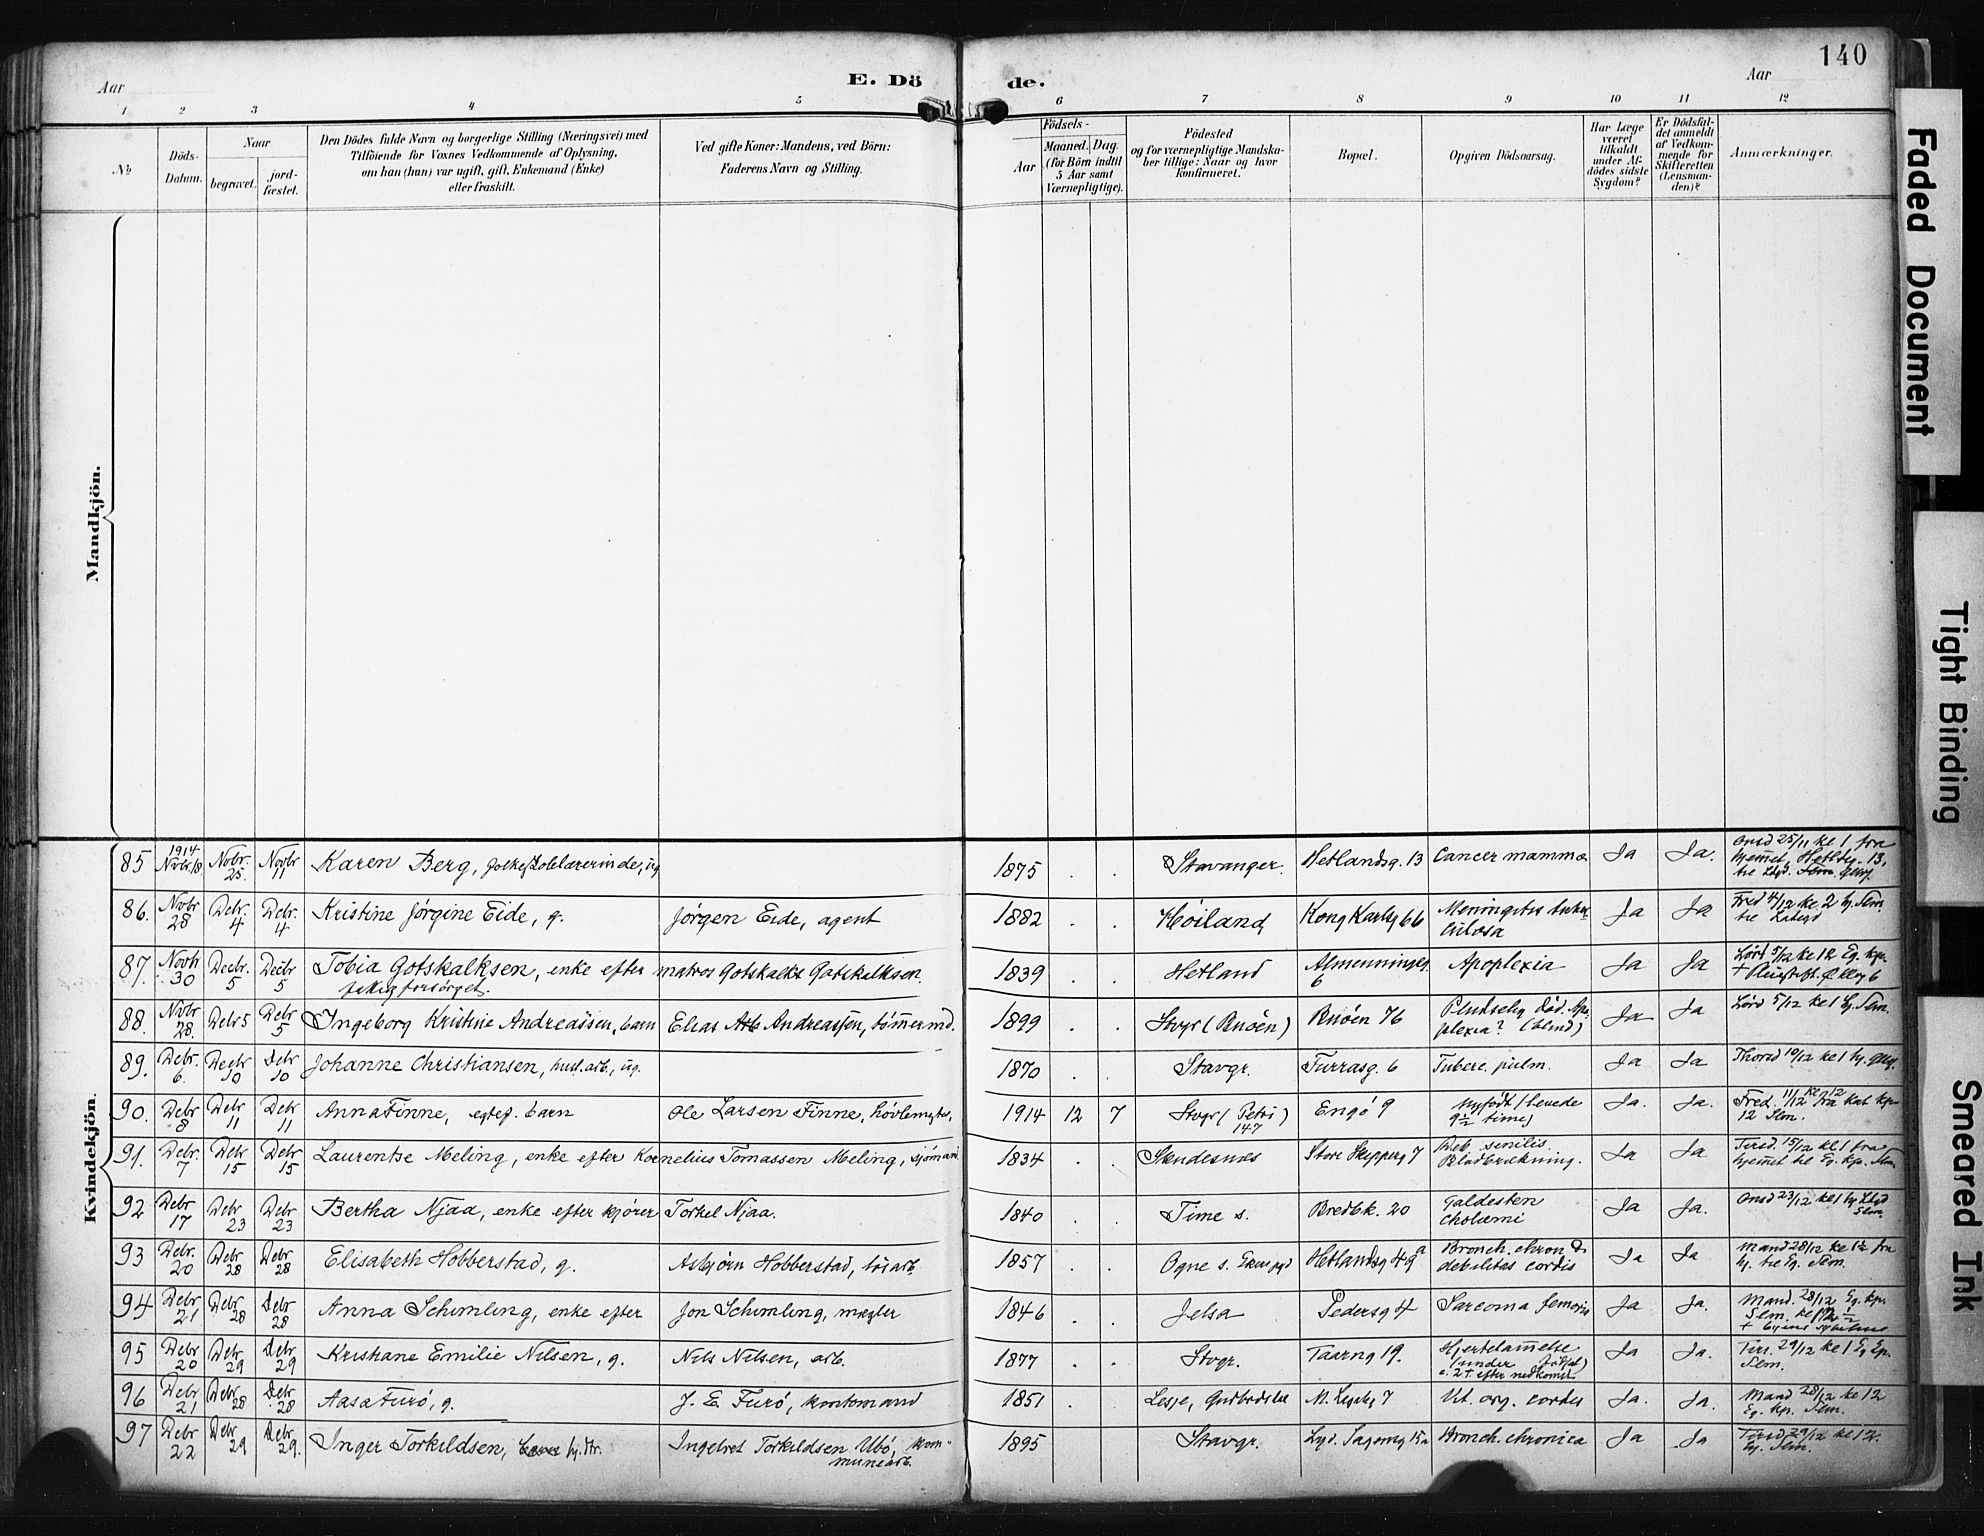 140
Aar
E. Dö
de.
Aar
1 2 3 4 5 6 7 8 9 10 11 12
No
Döds-
Datum.
Naar
begravet.
jord-
fæstet.
Den Dödes fulde Navn og borgerlige Stilling (Næringsvei) med
Tilföiende for Voxnes Vedkommende af Oplysning,
om han (hun) var ugift, gift, Enkemand (Enke)
eller fraskilt.
Ved gifte Koner: Mandens, ved Börn:
Faderens Navn og Stilling.
Födsels-
Aar
Maaned. Dag.
(for Börn indtil
5 Aar samt
Værnepligtige).
Födested
og for værnepligtige Mandska-
ber tillige: Naar og hvor
konfirmeret.
Bopæl.
Opgiven Dödsaarsag.
Har Læge
været
tilkaldt
under Af-
dödes sidste
Sygdom?
Er Dödsfal-
det anmeldt
af Vedkom-
mende for
Skifteretten
(Lensman-
den)?
Anmærkninger.
Mandkjön.
Kvindekjön.
85 1914 Novbr. 18 Novbr. 25. Novbr Karen Berg, 1875 . . Stavanger. Hetlandsg. 13 Cancer mammæ Ja Ja. Onsd 25/11 kl 1 fra
hjemmet, Hetldsg. 13,
86. Novbr 28 Debr. 4 Debr. 4 Kristine Jørgine Eide, g. Jørgen Eide, agent 1882 . . Høiland Kong Karlsg 66 Meningitis tuber
culosa Ja Ja Fred 4/12 kl. 2
87. Novbr 30 Decbr. 5 Decbr 5 Tobia Gotskalksen, enke efter matros Gotskalk Gotskalksen 1839 . . Hetland Almenningsg.
6 Apoplexia Ja Ja Lørd 5/12 kl 12 Eg. kp.
fattigforsørget.
88. Novbr 28. Debr 5 Debr 5 Ingeborg Kristine Andreassen, barn Elias Andreassen, tømmermd. 1899 . . Stvgr (Buøen) Buøen 76 Pludselig død. Apo
plexia? (blind) Ja Ja Lørd 5/12 kl 1
89. Debr. 6. Decbr 10 Debr 10 Johanne Christiansen, hus.arb., ug. 1870 . . Stavgr. Turrasg. 6 Tuberc. pulm. Ja Ja Thorsd 10/12 kl 1
90. Debr 8 Debr 11 Debr 11 Anna Finne, egtef. barn Ole Larsen Finne, høvlemester. 1914 12 7 Stvgr (Petri)
147 Engø 9 Nyfødt (levede
9½ time) Ja. Ja. Fred. 11/12 kl 12 fra kat kp
91. Debr. 7 Debr 15 Debr 15 Laurentse Meling, enke efter Kornelius Tomassen Meling, sjømand 1834 . . Skudesnes Store Skipperg 7 Deb. senilis.
Blodbrækning. Ja Ja Tirsd. 15/12 kl 1 fra
hjemmet til Eg. kp.
92 Debr 17 Debr 23 Debr 23 Bertha Njaa, enke efter kjører Torkel Njaa. 1840 . . Time s. Bredbk. 20 Galdesten
cholæmi Ja Ja. Onsd 23/12 kl 1
93 Debr. 20 Debr 28 Debr 28 Elisabeth Hobberstad, g. Asbjørn Hobberstad, løsarb. 1857 . . Ogne s. Hetlandsg 49a Bronch. chron &
debilitas cordis Ja Ja Mand 28/12 kl 1½ fra
94 Debr 21 Debr 28 Debr 28 Anna Schimling, enke efter Jon Schimling, mægler 1846 . . Jelsa Pedersg 4 Sarcoma femoris Ja Ja. Mand. 28/12 Eg. kp.
95 Debr 20 Debr 29 Debr 29 Kristiane Emilie Nilsen, g. Nils Nilsen, arb. 1877 . . Stvgr. Taarng 19. Hjertelammelse
(under fødsel)
efter nedkomst Ja Ja. Tirs. 29/12 kl 1 Eg kp.
96 Debr 21 Debr. 28 Debr. 28 Aasa Furø, g. J. E. Furø, kontomand 1851 . . Lesje, Gudbrdsdal 7 Vit. org. cordis Ja. Ja. Mand 28/12 kl 12
Eg. kp.
97 Debr 22 Debr 29 Debr 29. Inger Torkildsen, Ingebret Torkildsen Ubø, kom-
munearb. 1895 Stavgr. 15a Bronch. chronica Ja Ja Tirsd 29/12 kl 12.
Faded Document
Tight Binding
Smeared Ink